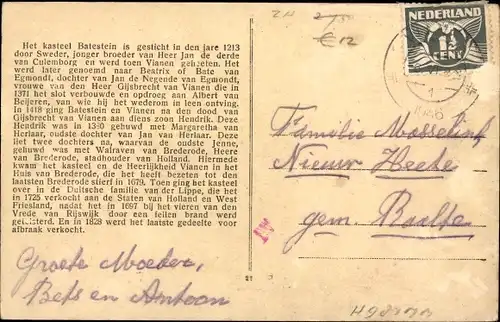 Het kasteel Batestein is gesticht in den jare 1213
door Sweder, jonger broeder van Heer Jan de derde
van Culemborg en werd toen Vianen geheeten. Het
werd later genoemd naar Beatrix of Bate van
Egmond, dochter van Jan de Negende van Egmondt,
vrouwe van den Heer Gijsbrecht van Vianen die in
1371 het slot verbouwde en opdroeg aan Albert van
Beijeren, van wie hij het wederom in leen ontving.
In 1416 ging Batestein en Vianen na den dood van
Gijsbrecht van Vianen aan diens zoon Hendrik. Deze
Hendrik was in 1390 gehuwd met Margaretha van
Herlaar, oudste dochter van Jan van Herlaar. Deze
liet twee dochters na, waarvan de oudste Jenne,
gehuwd was met Walraven van Brederode, Heere
van Brederode, stadhouder van Holland. Hiermede
kwam het kasteel en de Heerlijkheid Vianen in het
Huis van Brederode, die het heeft bezeten tot den
laatsten Brederode stierf in 1679. Toen ging het kasteel
over in de Duitsche familie van der Lippe, die het
in 1725 verkocht aan de Staten van Holland en West
Friesland, nadat het in 1697 bij het vieren van den
Vrede van Rijswijk door een feilen brand werd
geteisterd. En in 1829 werd het laatste gedeelte voor
afbraak verkocht.
Groete Moeder,
Bets en Antoon
ZH
€12
NEDERLAND
1½
CENT
Familie
Nieuw Heete
gem. Raalte
21